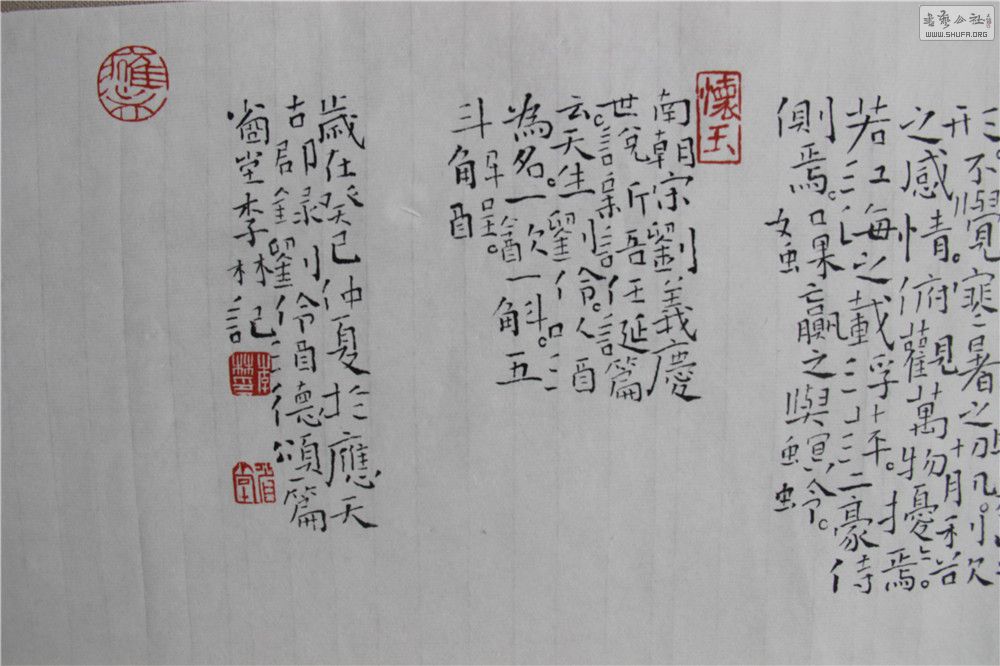 不覺寒暑之切肌。利欲
之感情。俯觀萬物擾擾。焉
若江海之載浮萍。二豪侍
側焉。如蜾蠃之與螟蛉。
懷玉
南朝宋劉義慶
世說新語任誕篇
云天生劉伶。以酒
為名。一飲一斛。五
斗解酲。
歲在癸巳仲夏於應天
古郡錄劉伶酒德頌篇
嗇堂李林記
應天
書藝公社
WWW.SHUFA.ORG